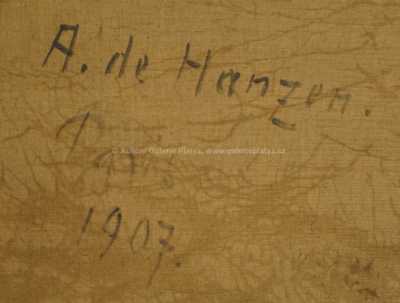 A. de Hanzen.
Paris
© Aukční Galerie Platýz, www.galerieplatyz.cz
1907.